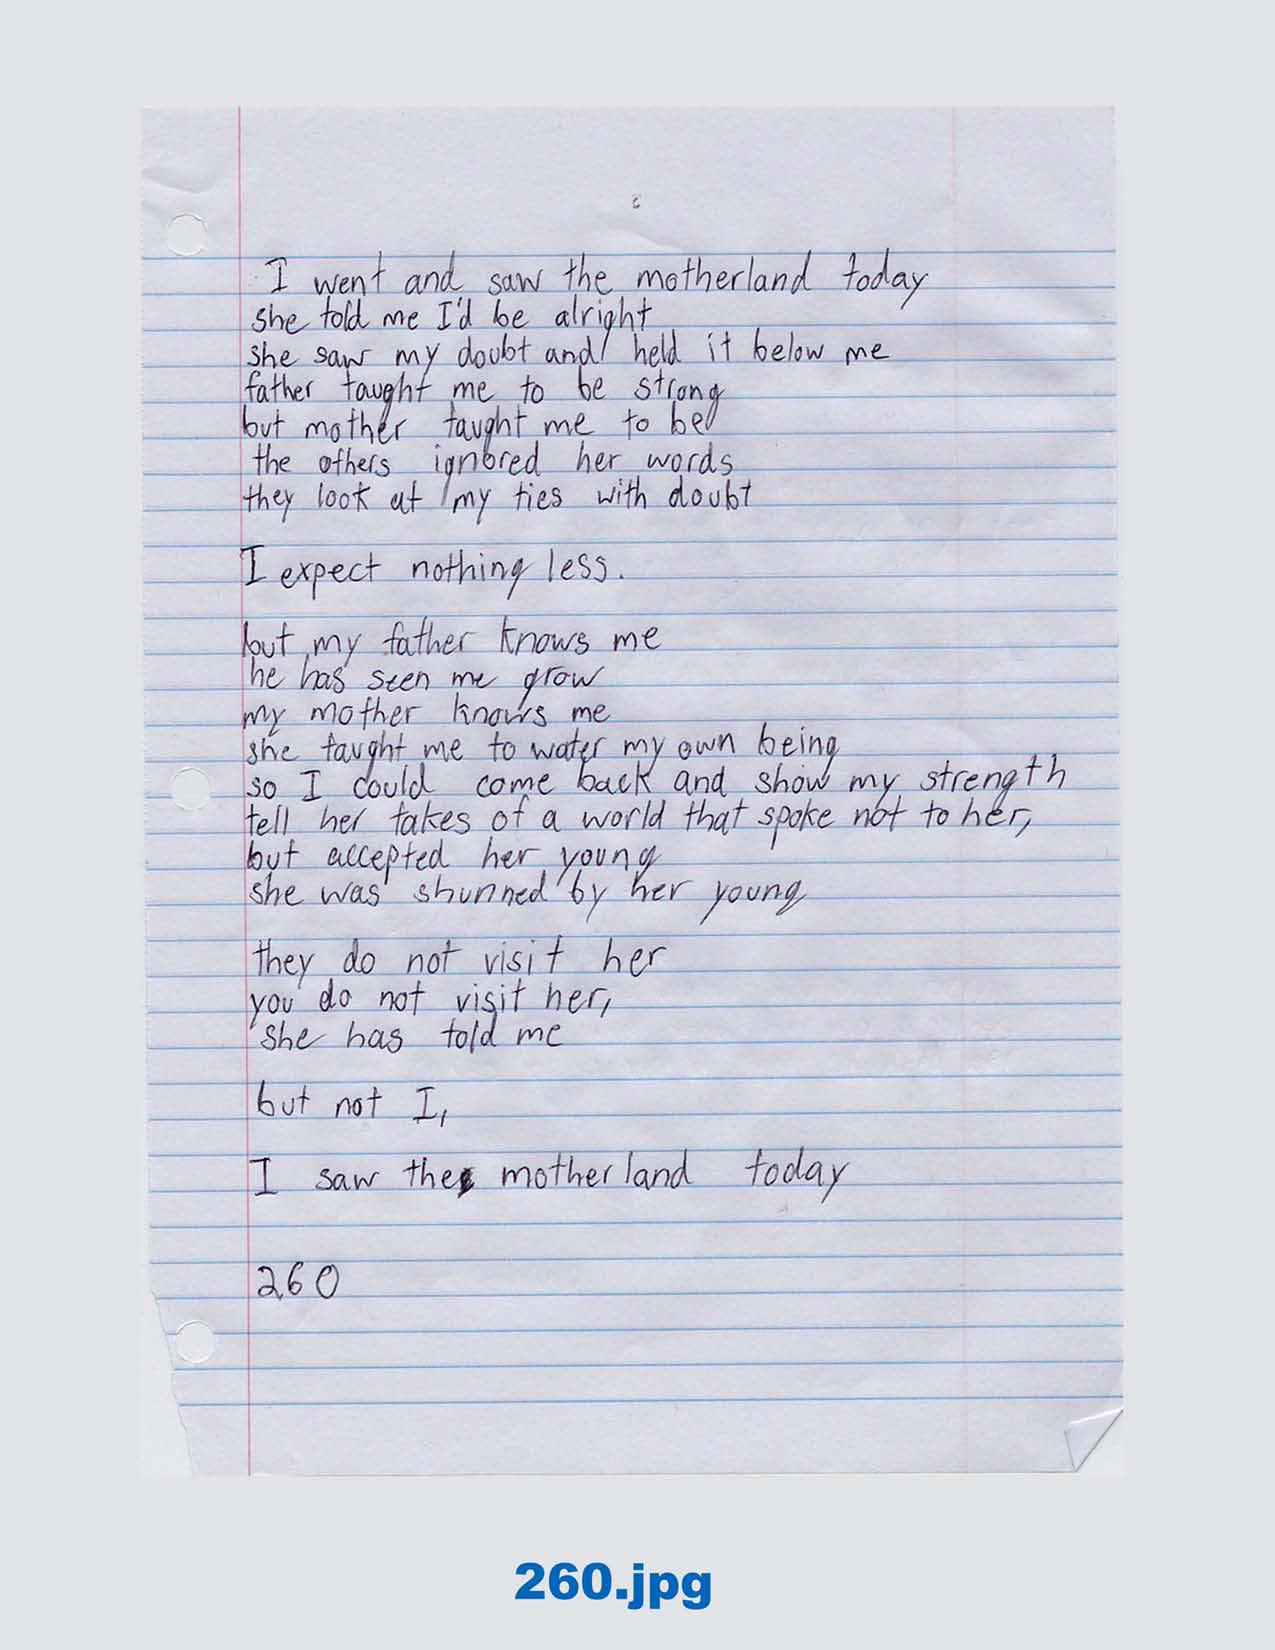 I went and saw the motherland today
she told me I'd be alright
she saw my doubt and held it below me
father taught me to be strong
but mother taught me to be
the others ignored her words
they look at my ties with doubt
I expect nothing less.
but my father knows me
he has seen me grow
my mother knows me
she taught me to water my own being
so I could come back and show my strength
tell her takes of a world that spoke not to her,
but accepted her young
she was shunned by her young
they do not visit her
you do not visit her,
she has told me
but not I,
I saw the motherland today
260
260.jpg